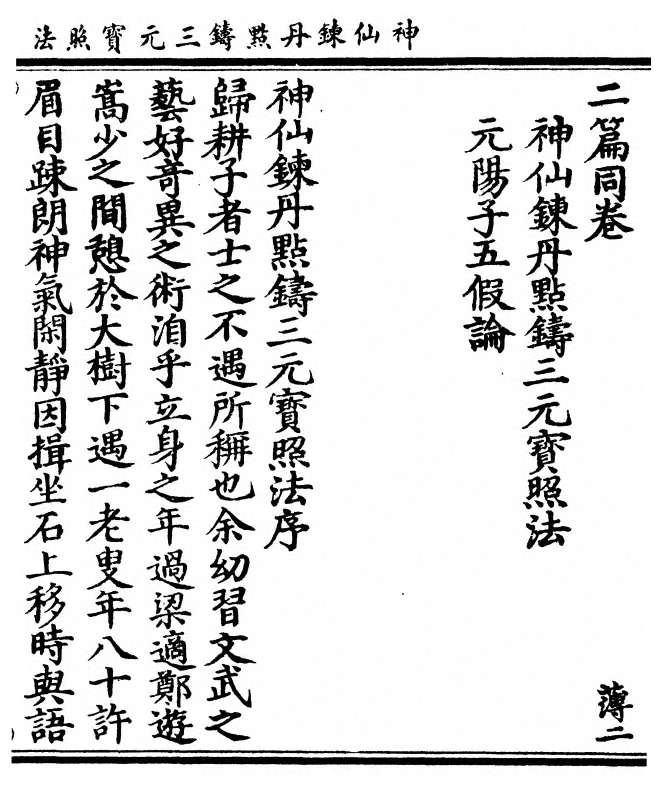 神仙鍊丹點鑄三元寶照法
二篇同卷 薄二
神仙鍊丹點鑄三元寶照法
元陽子五假論
神仙鍊丹點鑄三元寶照法序
歸耕子者士之不遇所稱也余幼習文武之
藝好竒異之術洎乎立身之年過梁適鄭遊
嵩少之間憇於大樹下遇一老叟年八十許
眉目踈朗神氣閑靜因揖坐石上移時與語